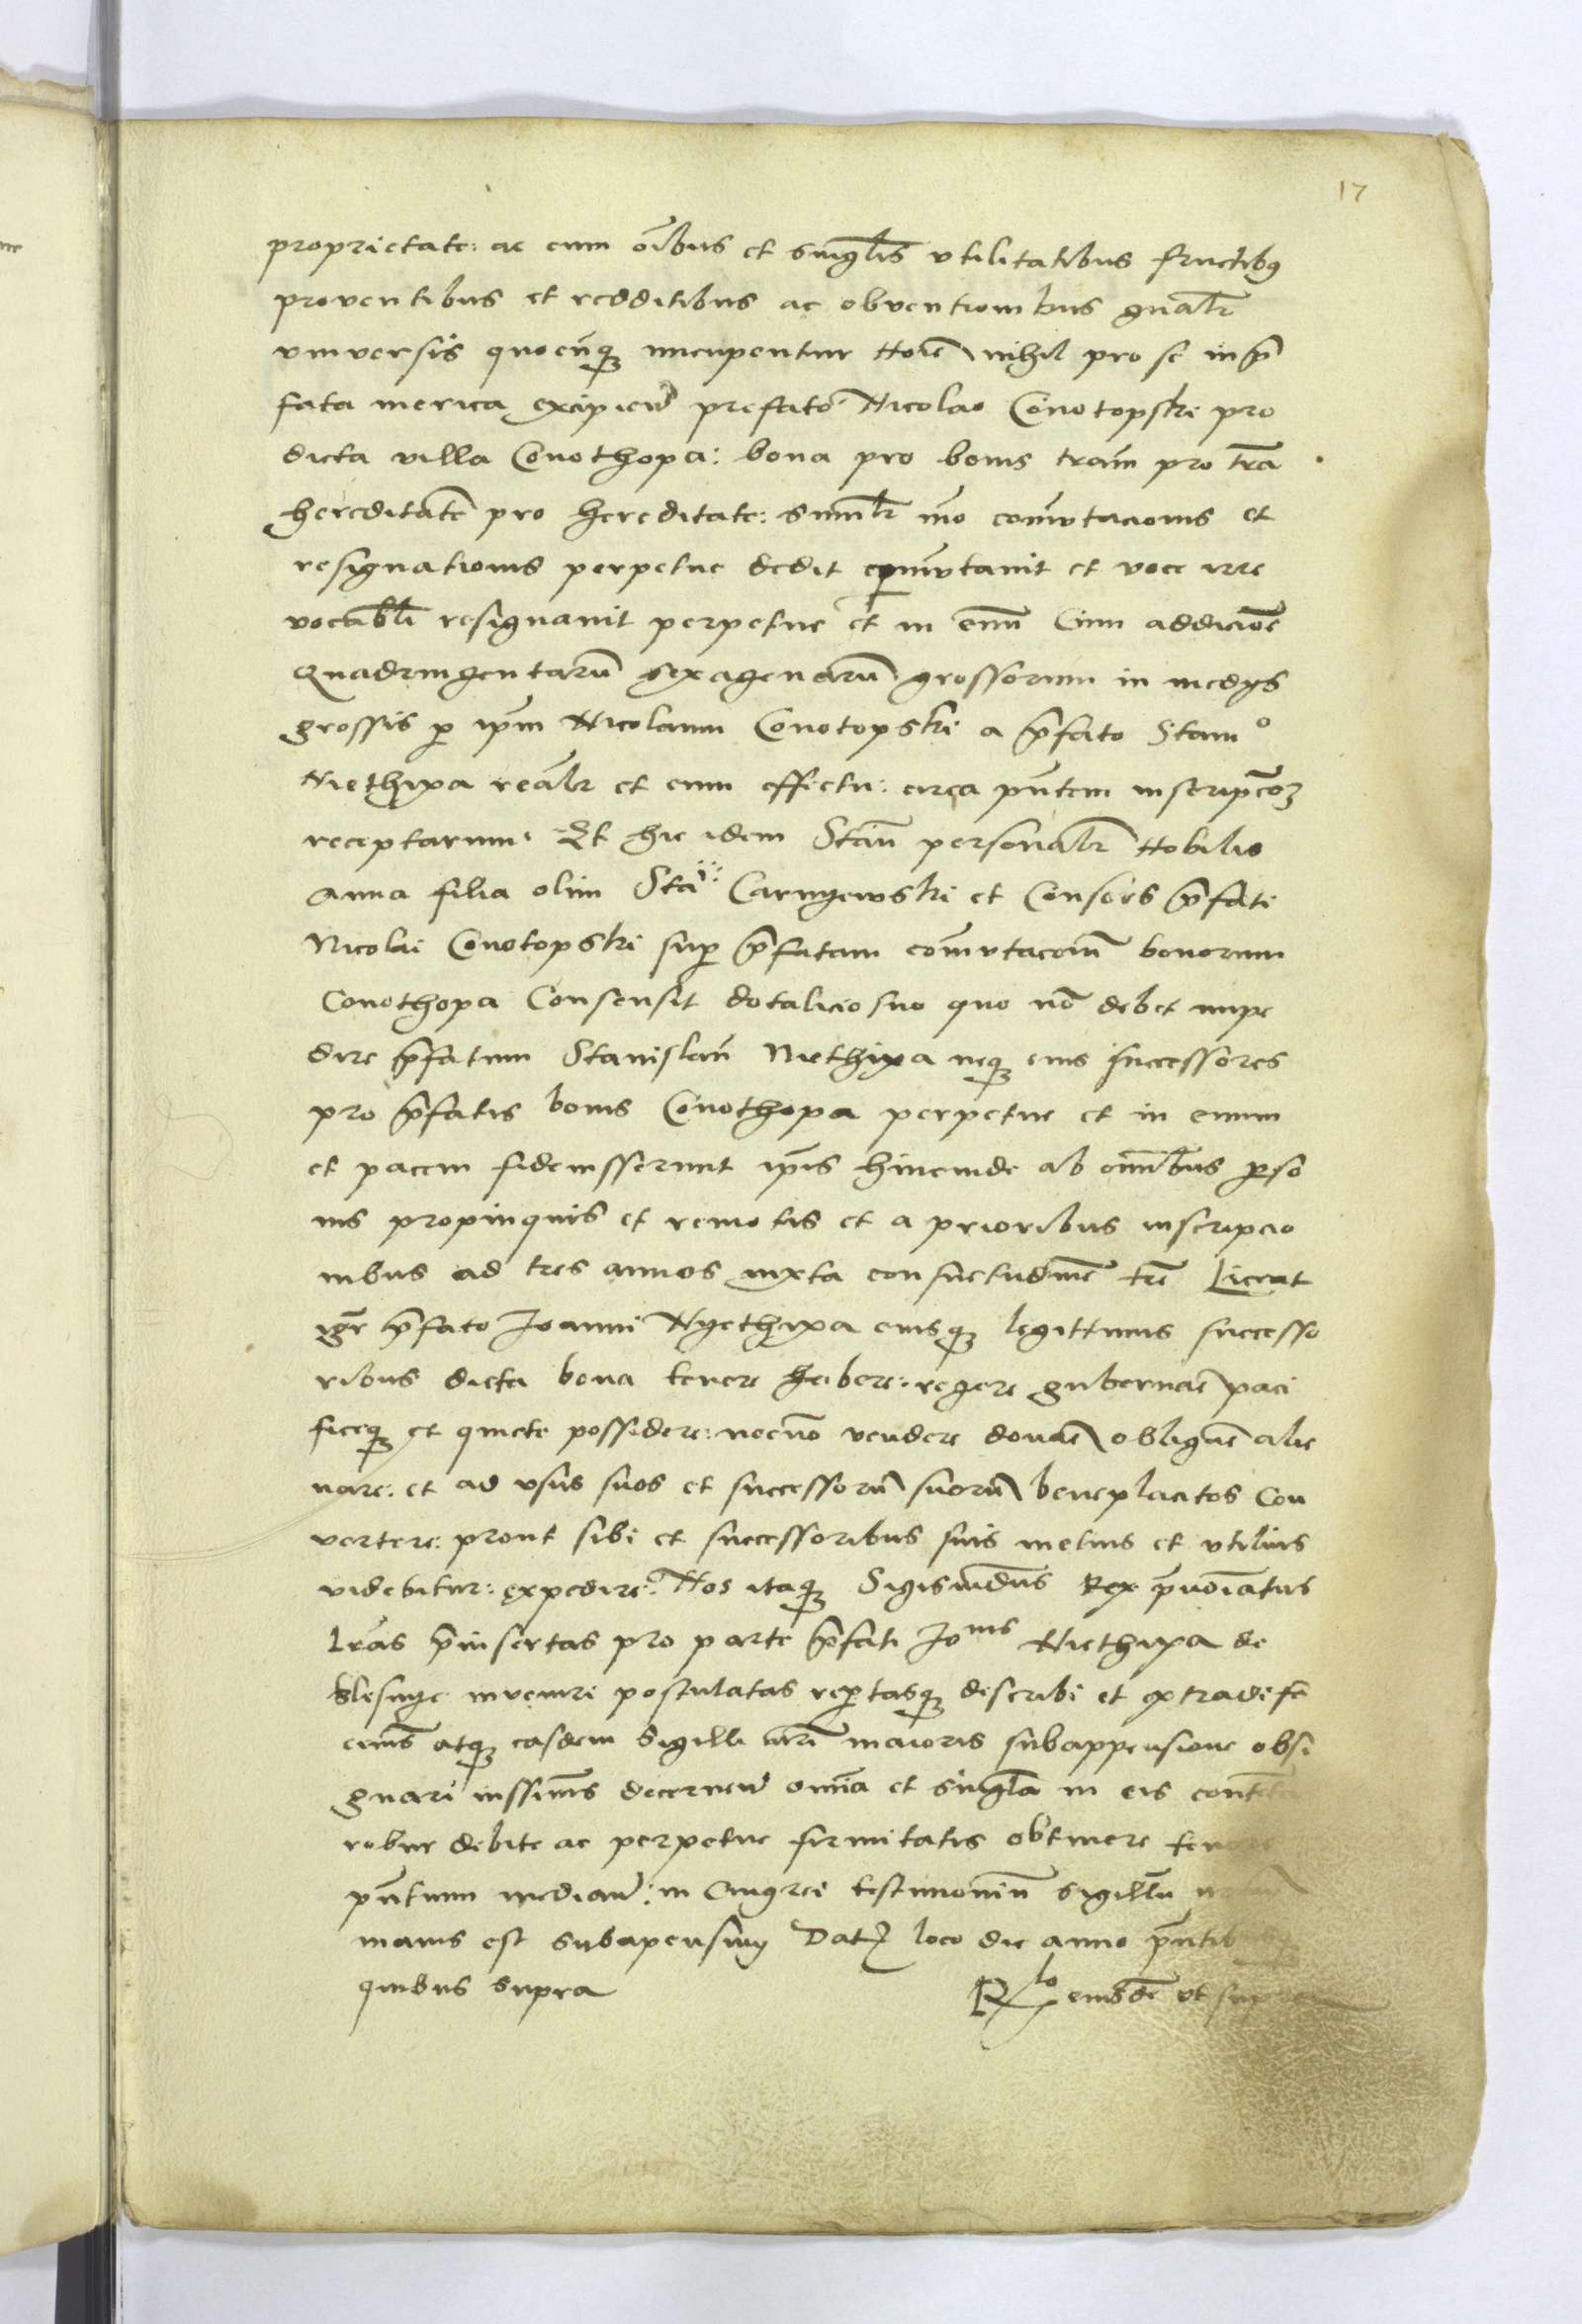 17
proprietate: ac cum oĩbus et singłis vtilitatibus fructibꝫ
proventibus et redditibus ac obventionibus gñalr̃
vniversis quocũqꝫ nuncupentur noĩe nihil pro se in p̃
fata merica excipieñ prefato Nicolao Conotopski pro
dicta villa Conothopa: bona pro bonis trãm pro tr̃a
hereditatẽ pro hereditate: similr̃ mõ com̃vtacionis et
resignationis perpetue dedit com̃vtavit et voce irre
vocabłi resignavit perpetue et in evũ Cum addicioẽ
Quadringentarũ sexagenarũ grossorum in medijs
grossis ꝑ ip̃m Nicolaum Conotopski a p̃fato Stanio
Niethixa realr̃ et cum effectu: circa pñtem inscripcõꝫ
receptarum. Et hic idem Stañ personalr̃ Nobilis
Anna filia olim Stai Carnyewski et Consors p̃fati
Nicolai Conotopski suꝑ p̃fatam com̃vtaconẽ bonorum
Conothopa Consensit dotalicio suo quo nõ debet impe
dire p̃fatum Stanislaũ Niethixa neqꝫ eius successores
pro p̃fatis bonis Conothopa perpetue et in evum
et pacem fideiusserunt ip̃is hincinde ab om̃ibus ꝑso
nis propinquis et remotis et a prioribus inscripcio
nibus ad tres annos iuxta consuetudinẽ tr̃e Liceat
igr̃ p̃fato Joanni Nyethixa eiusqꝫ legittimis successo
ribus dicta bona tenere habere: regere gubernar̃e paci
ficeqꝫ et quiete possidere: necnõ vendere donar̃e obligar̃e alie
nare: et ad vsus suos et successorũ suorũ beneplacitos Con
vertere: prout sibi et successoribus suis melius et vtilius
videbitur: expedire: Nos itaqꝫ Sigismũdus Rex p̃noĩatus
lr̃as p̃insertas pro parte p̃fati Jonis Niethixa de
Klesnye invenire postulatas rep̃tasqꝫ describi et extradi fe
cimus atqꝫ easdem sigilli nr̃i maioris subappensione obsi
gnari iussimus decerneñ om̃ia et singl̃a in eis contẽta
robur debite ac perpetue firmitatis obtinere tenore
pñtium mediañ: in Cuius rei testimoniũ sigillũ nrũm
maius est subapensum Datꝫ loco die anno pñtibus
quibus supra
Rlo eiusdẽ vt supra